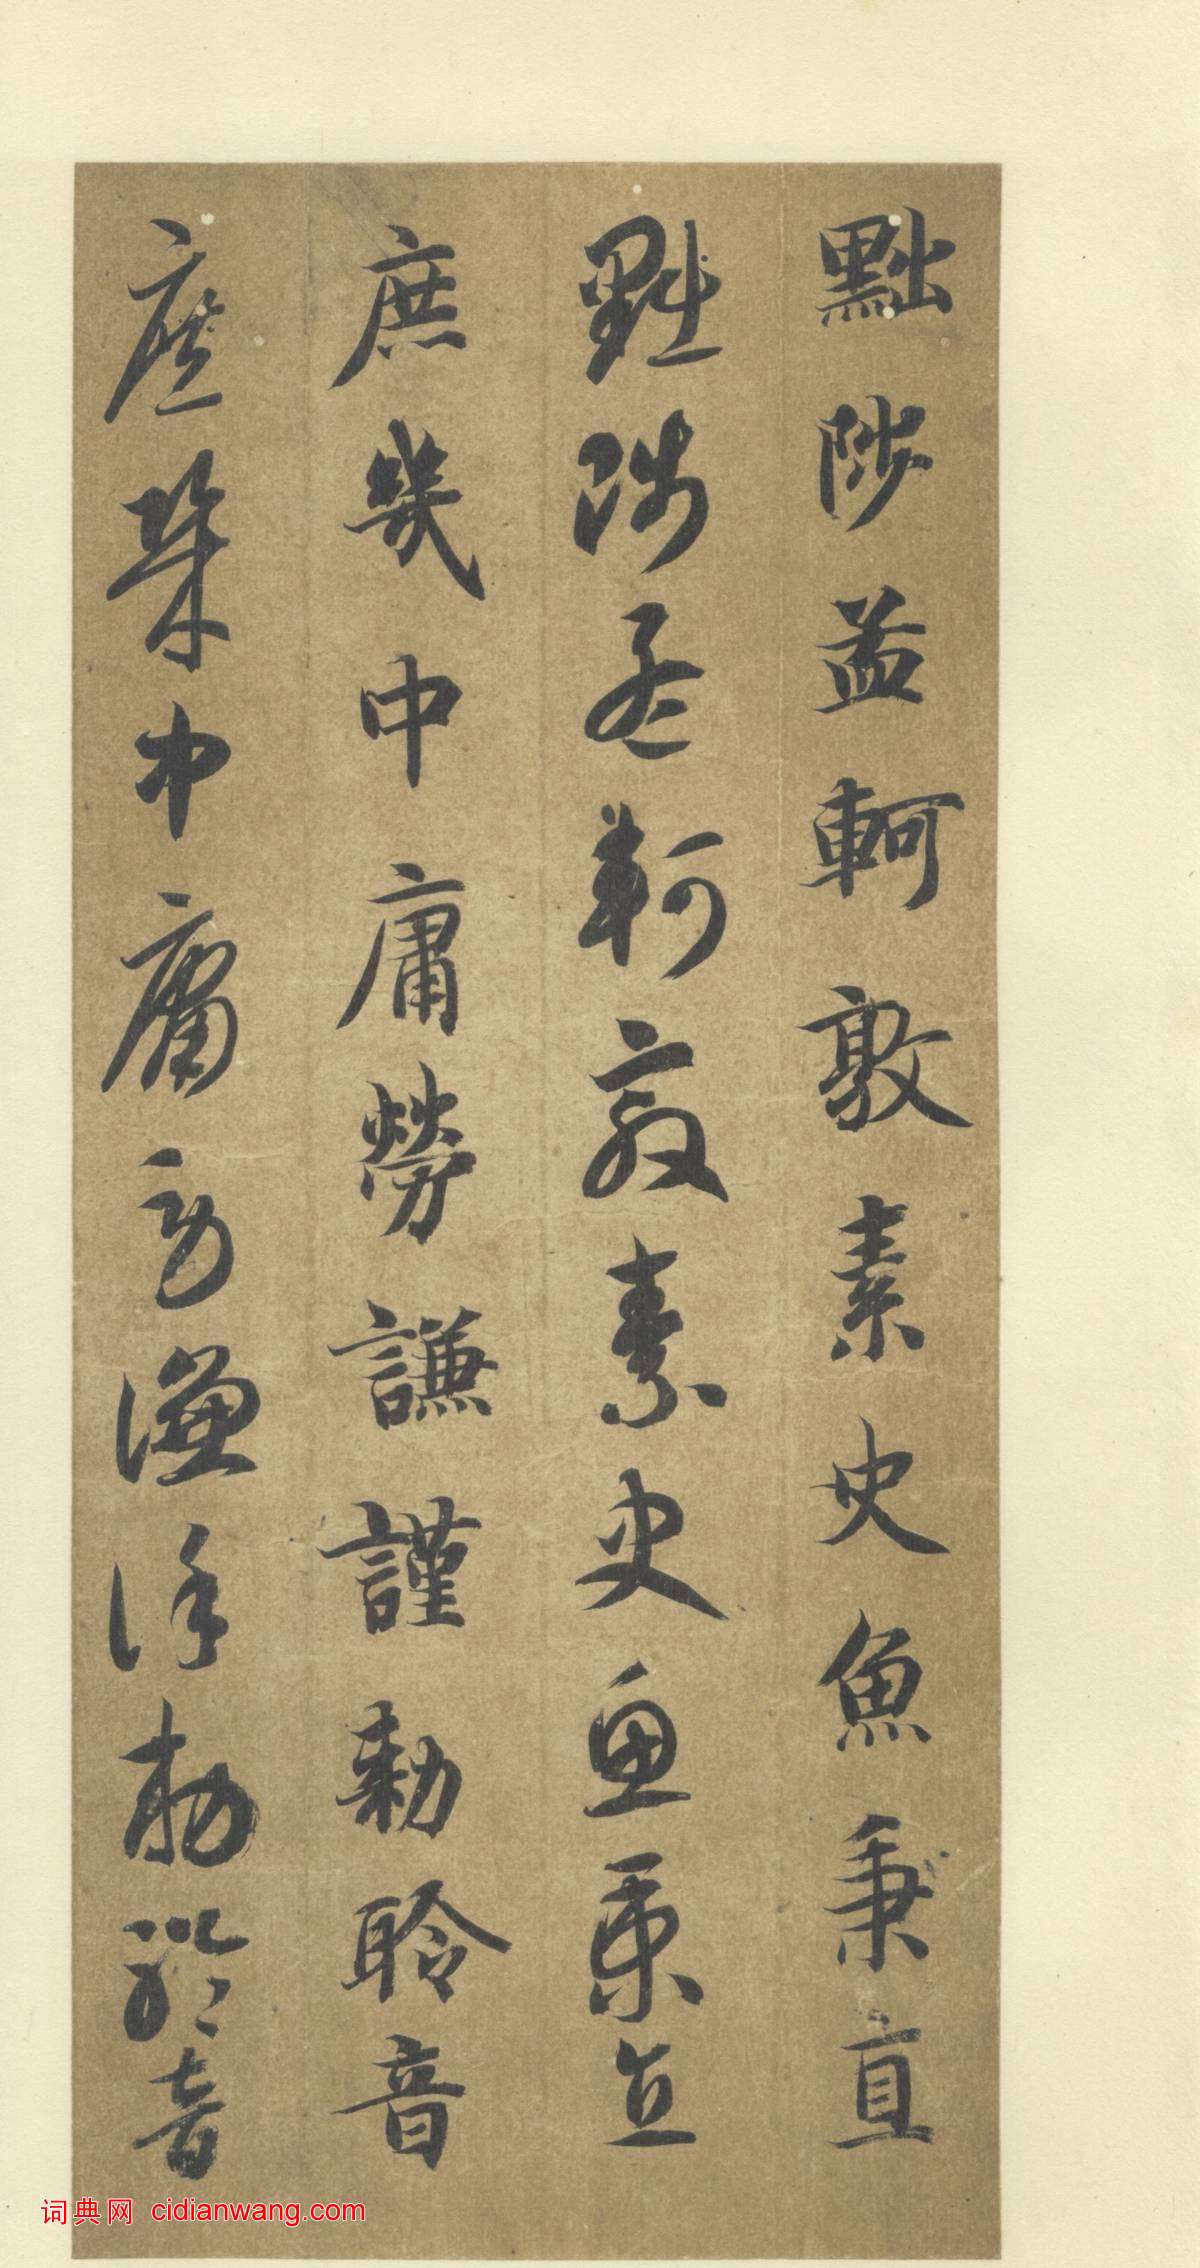 黜陟孟軻敦素史魚秉直
黜陟孟軻敦素史魚秉直
庶幾中庸勞謙謹勑聆音
庶幾中庸勞謙謹勑聆音
词典网 cidianwang.com